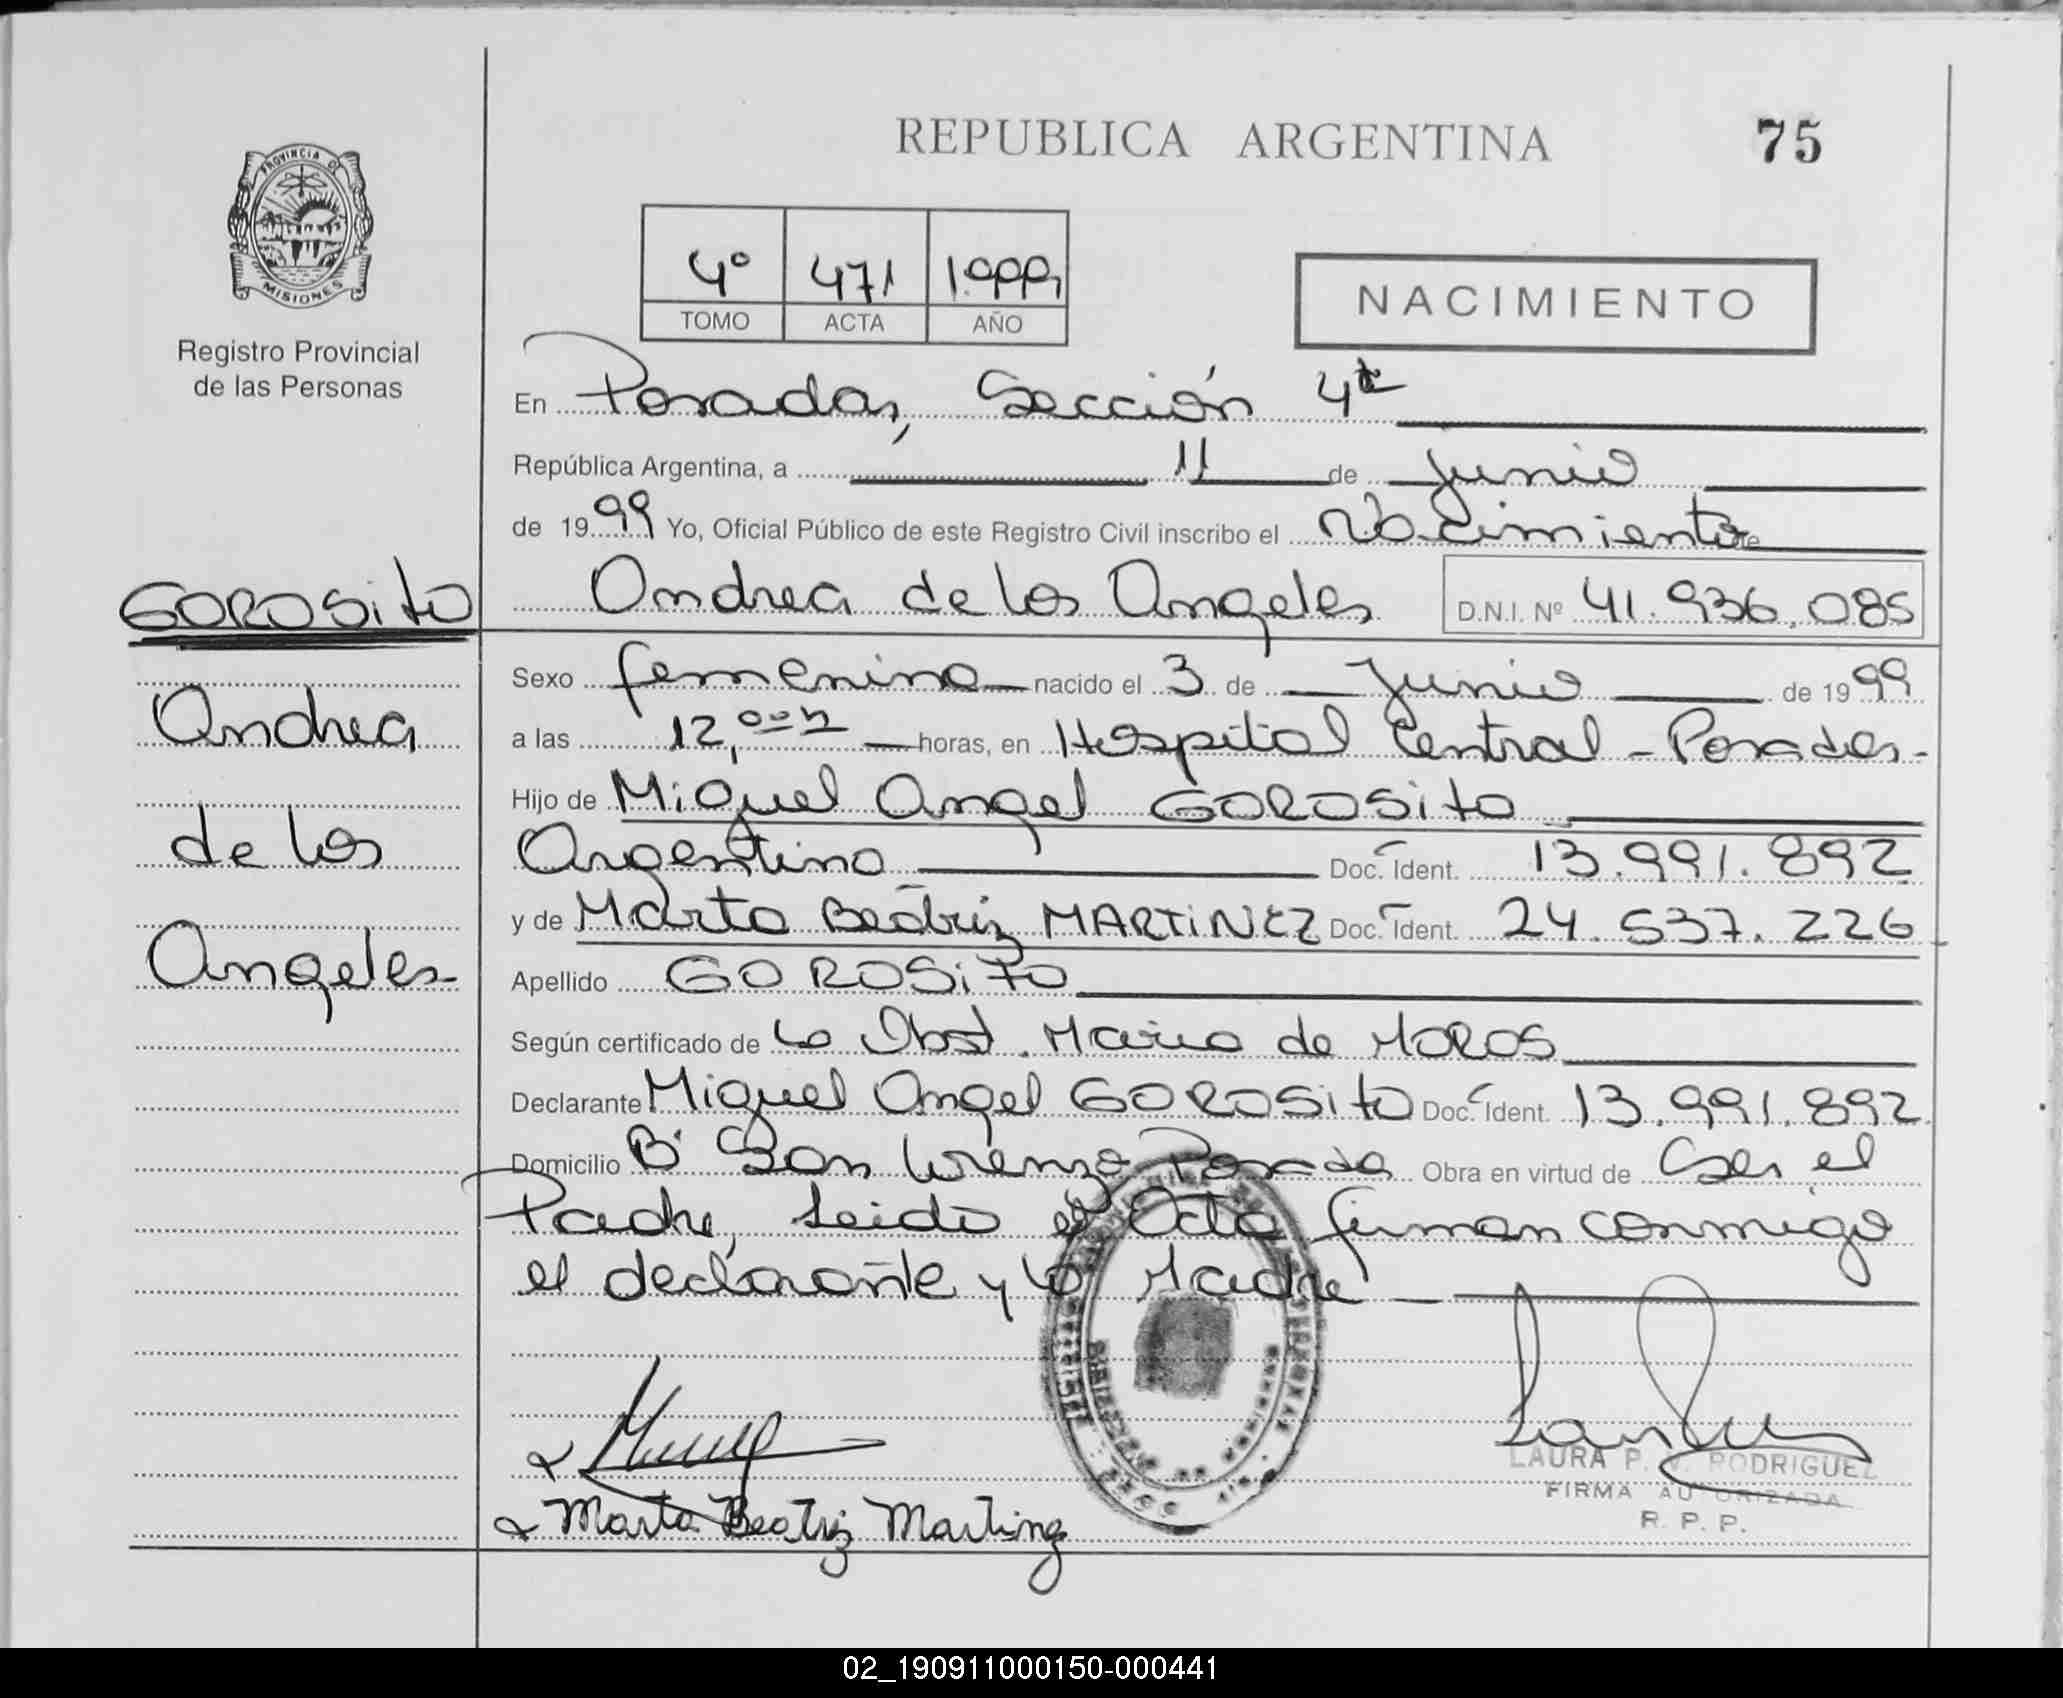 REPUBLICA ARGENTINA
75
PROVINCIA DE
MISIONES
Registro Provincial
de las Personas
4º 471 1.999
TOMO ACTA AÑO
NACIMIENTO
En Posadas, Sección 4ta
República Argentina, a 11 de Junio
de 1999 Yo, Oficial Público de este Registro Civil inscribo el Nacimiento de
GOROSito
Andrea de los Angeles D.N.I. Nº 41.936.085
Sexo femenino nacido el 3 de Junio de 1999
Andrea
a las 12,00 horas, en Hospital Central - Posadas -
Hijo de Miguel Angel GOROSito
de los
Argentino Doc. Ident. 13.991.892
y de Marta Beatriz MARTINEZ Doc. Ident. 24.537.226
Angeles
Apellido GOROSiTO
Según certificado de la Obst. Maria de MOROS
Declarante Miguel Angel GOROSitO Doc. Ident. 13.991.892
Domicilio Bº San Lorenzo Posadas Obra en virtud de Ser el
Padre, Leido el Acta firman conmigo
el declarante y la Madre
Marta Beatriz Martinez
LAURA P. V. RODRIGUEZ
FIRMA AUTORIZADA
R. P. P.
02_190911000150-000441